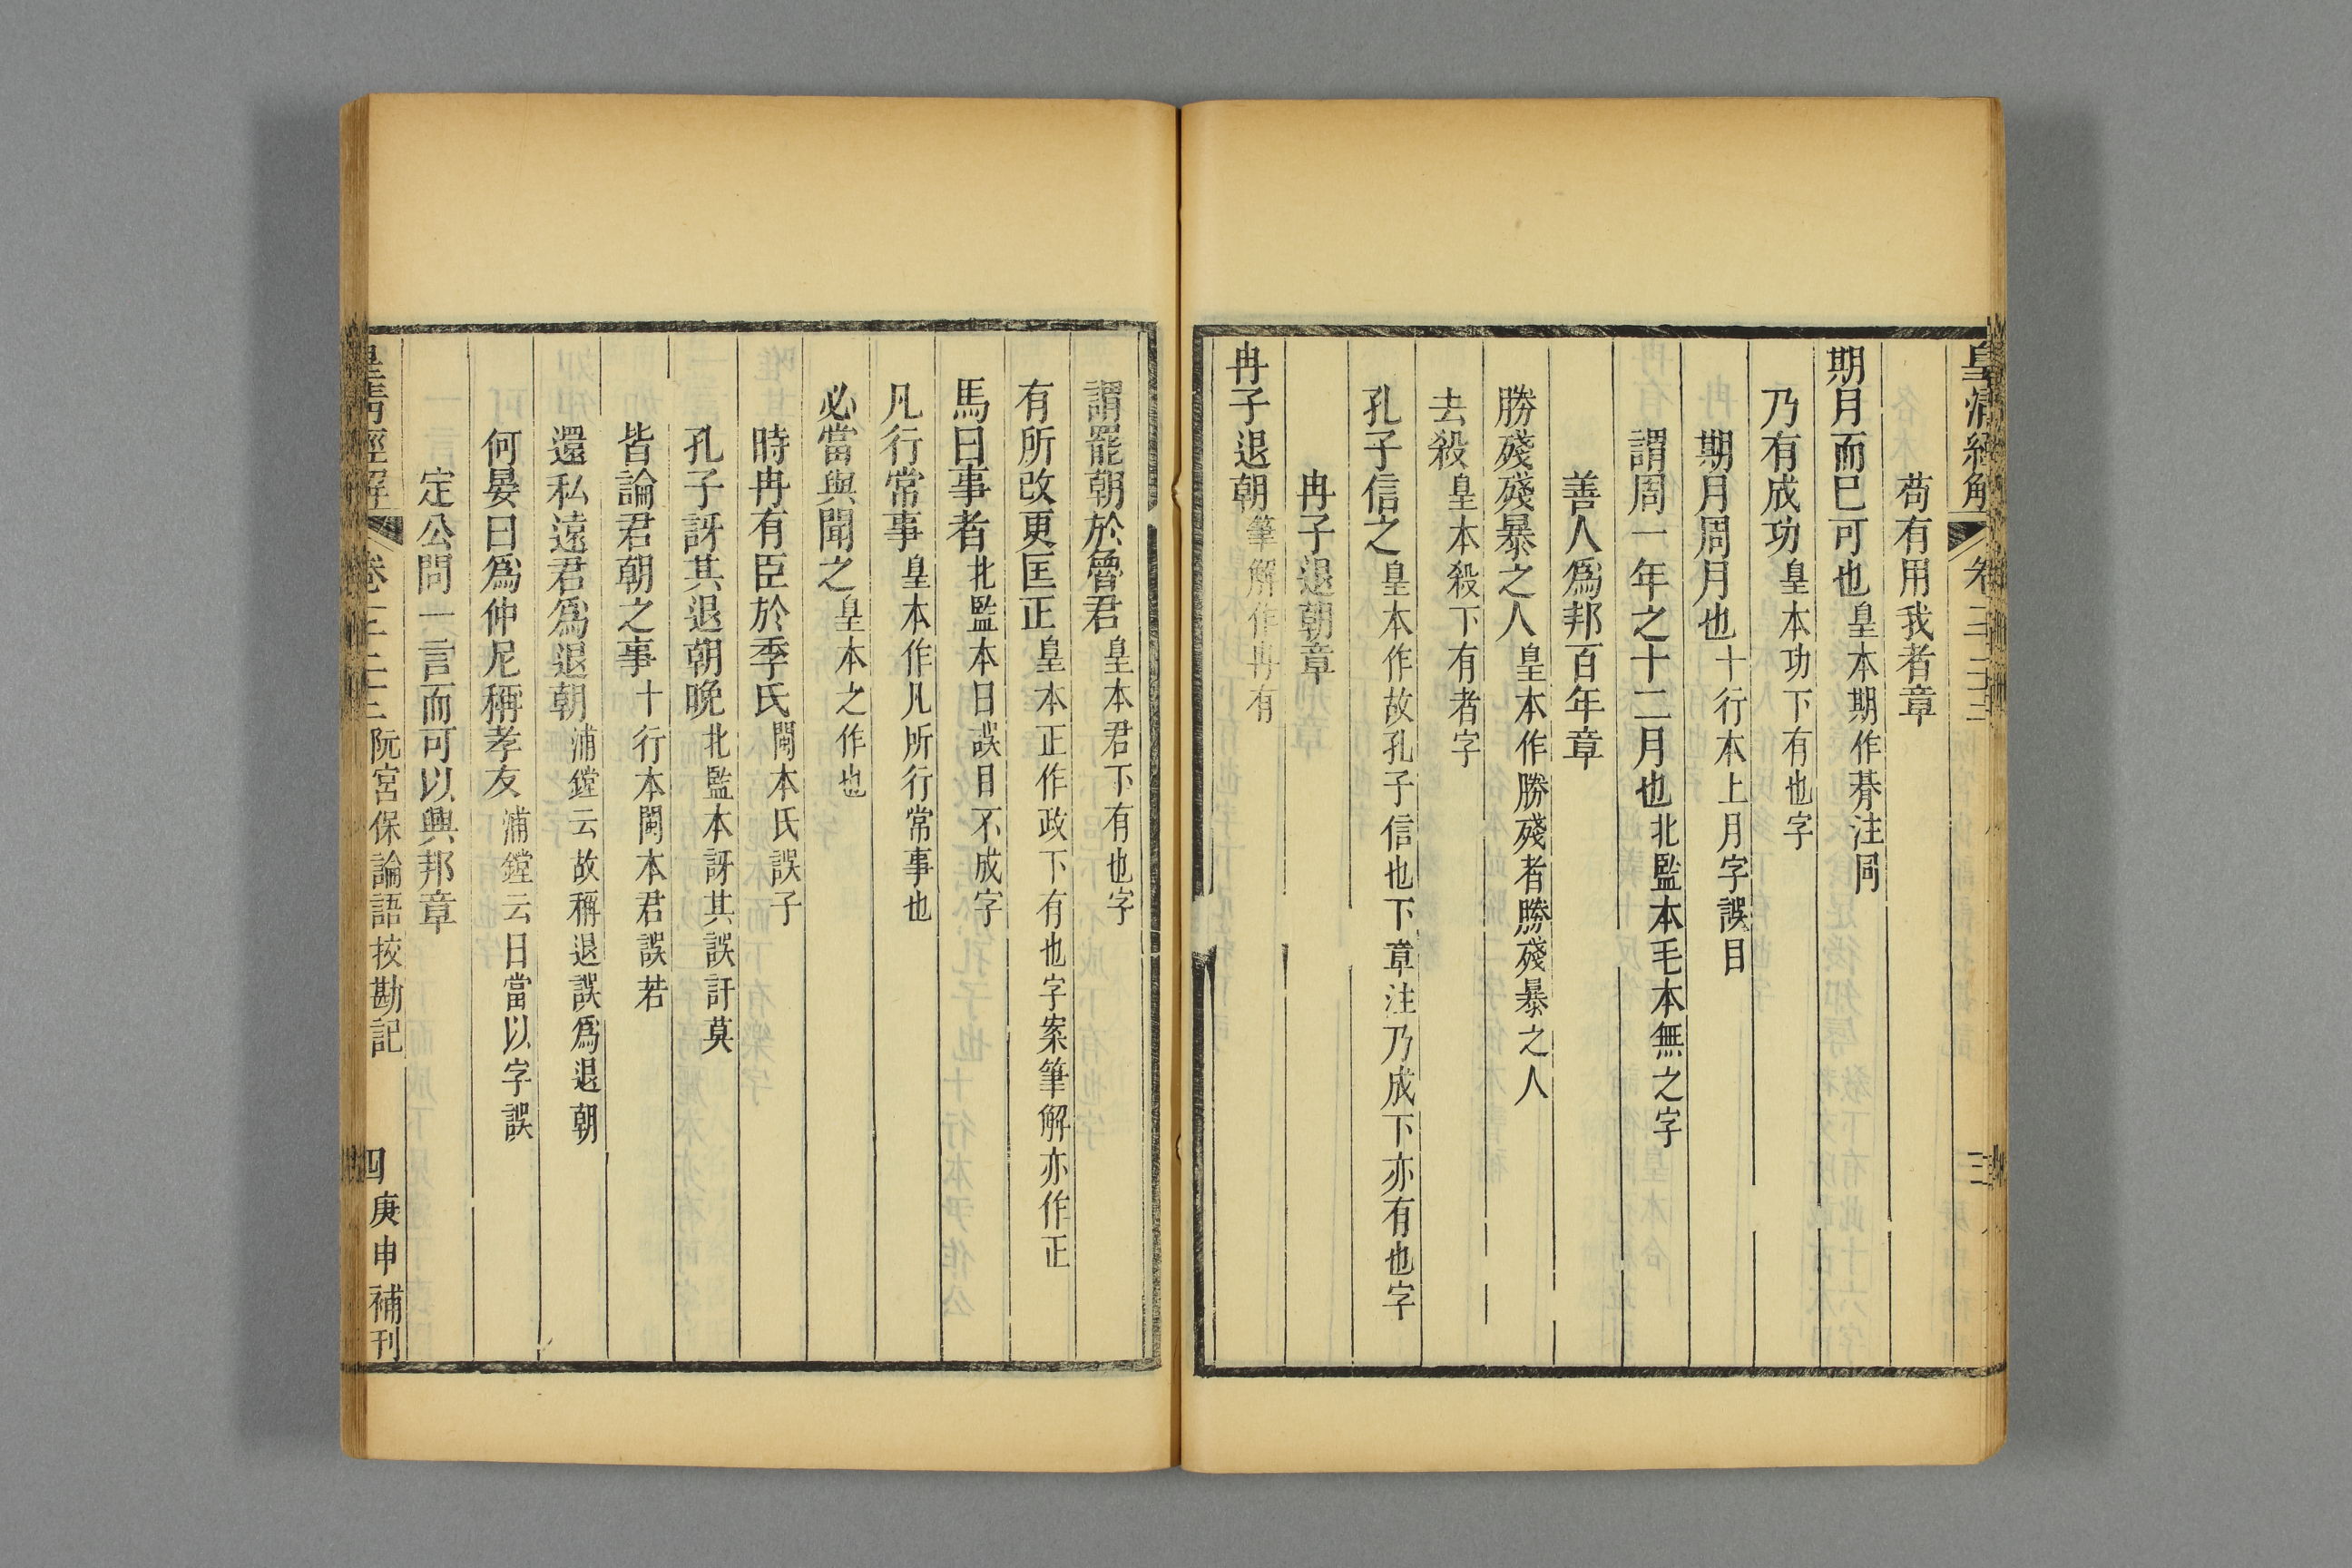 皇清經解 卷 三
苟有用我者章
期月而巳可也皇本期作朞注同
乃有成功皇本功下有也字
期月周月也十行本上月字誤目
謂周一年之十二月也北監本毛本無之字
善人爲邦百年章
勝殘殘暴之人皇本作勝殘者勝殘暴之人
去殺皇本殺下有者字
孔子信之皇本作故孔子信也下章注乃成下亦有也字
冉子退朝章
冉子退朝筆解作冉有
謂罷朝於魯君皇本君下有也字
有所改更匡正皇本正作政下有也字案筆解亦作正
馬曰事者北監本曰誤目不成字
凡行常事皇本作凡所行常事也
必當與聞之皇本之作也
時冉有臣於季氏閩本氏誤子
孔子訝其退朝晚北監本訝其誤訐莫
皆論君朝之事十行本閩本君誤若
還私遠君爲退朝浦鏜云故稱退誤爲退朝
何晏曰爲仲尼稱孝友浦鏜云曰當以字誤
定公問一言而可以興邦章
皇清經解 卷 阮宮保論語挍勘記 四 庚申補刊